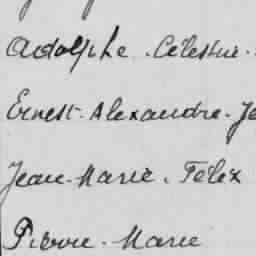 Adolphe. Célestin.
Ernest. Alexandre. Je
Jean. Marie. Félix
Pierre. Marie